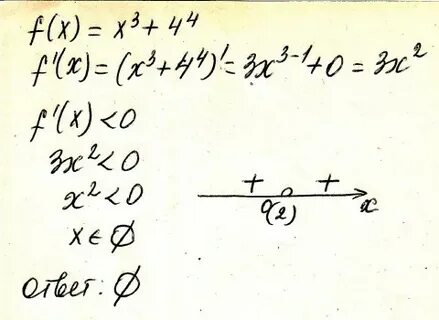 f(x) = x³ + 4⁴
f'(x) = (x³ + 4⁴)' = 3x³⁻¹ + 0 = 3x²
f'(x) < 0
3x² < 0
x² < 0
x ∈ ∅
+ +
0(2) x
ответ: ∅